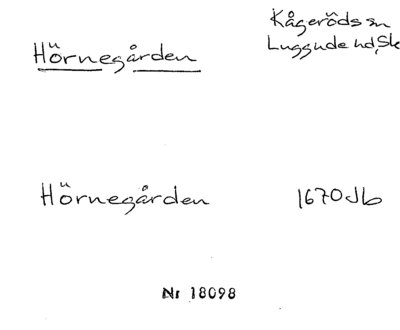 Hörnegården
Kågeröds sn
Luggude hd, Sk
Hörnegården
1670 Jb
Nr 18098